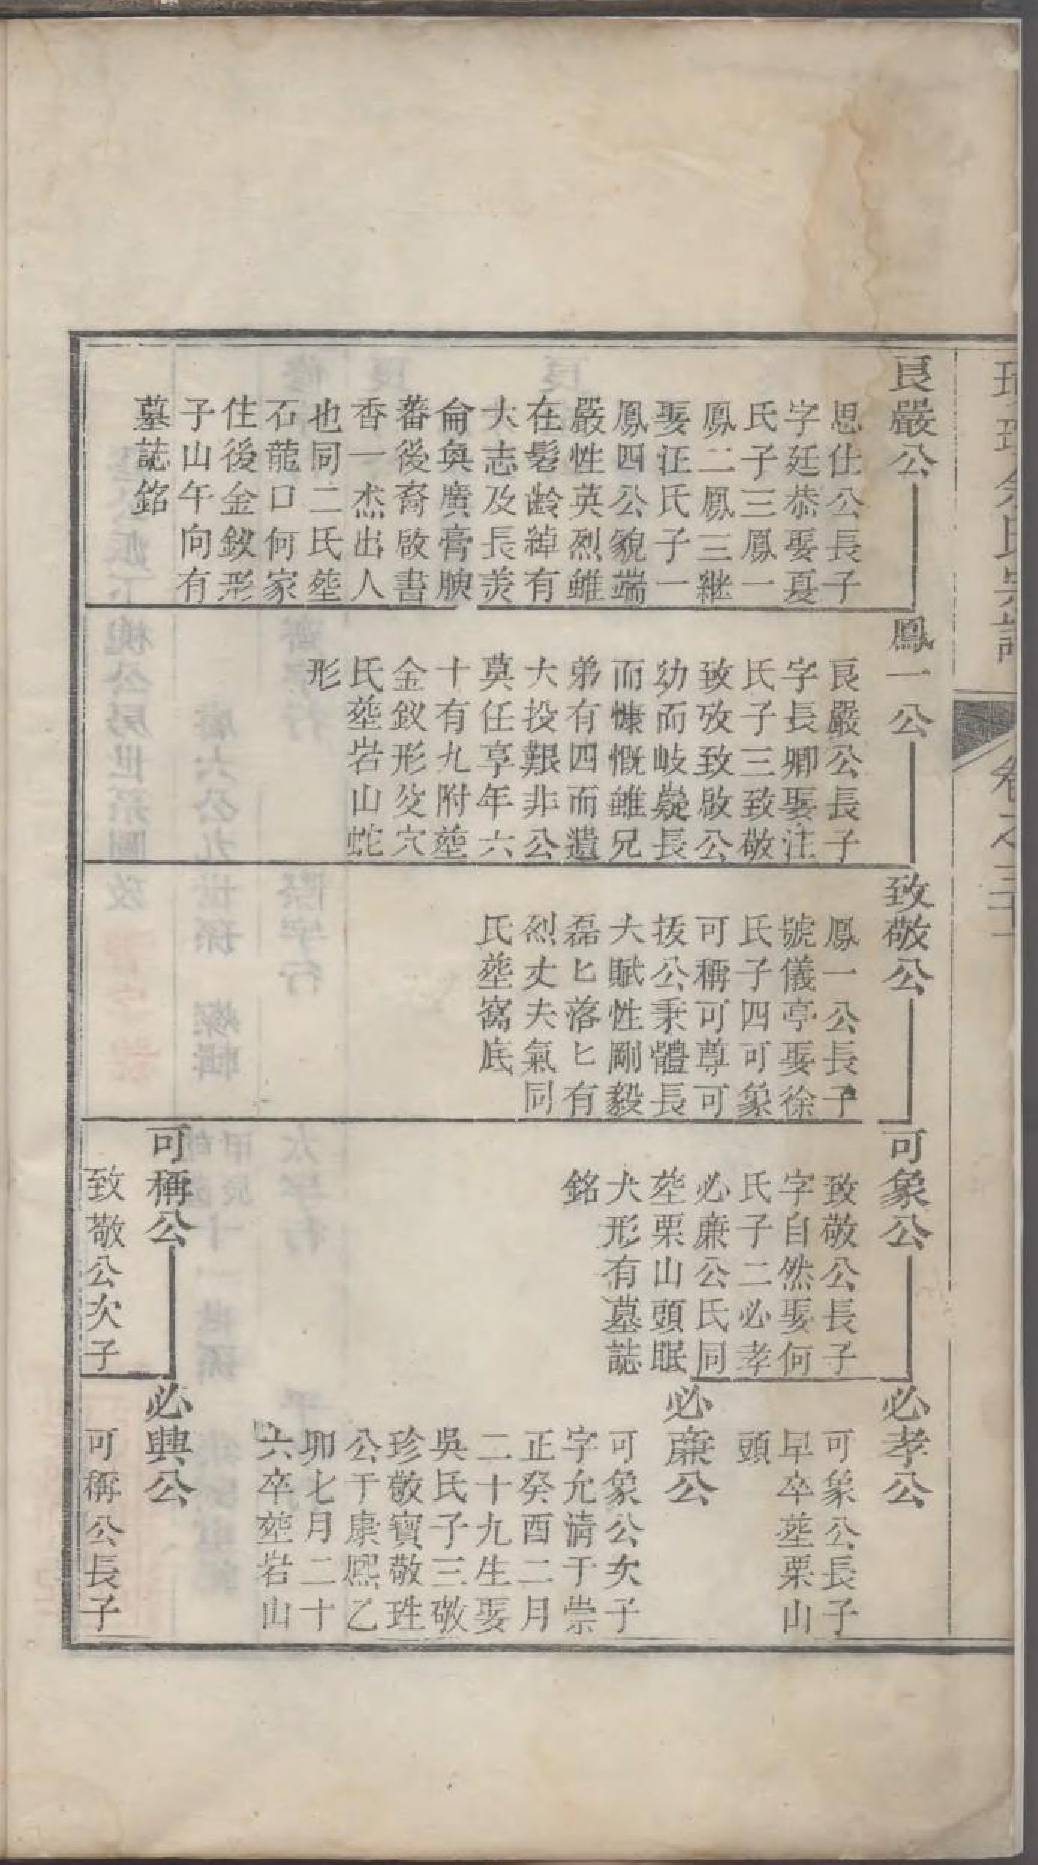 艮嚴公
思仕公長子
字廷恭娶夏
氏子三鳳一
鳳二鳳三継
娶汪氏子一
鳳四公貌端
嚴性英烈雖
在髫齡綽有
大志及長羙
侖奐廣膏腴
蕃後裔啟書
香一杰出人
也同二氏塟
石龍口何家
住後金釵形
子山午向有
墓誌銘
鳳一公
艮嚴公長子
字長卿娶汪
氏子三致敬
致攷致啟公
幼而岐嶷長
而慷慨雖兄
弟有四而遺
大投艱非公
莫任享年六
十有九附塟
金釵形父穴
氏塟岩山蛇
形
致敬公
鳳一公長子
號儀亭娶徐
氏子四可象
可稱可尊可
拔公秉體長
大賦性剛毅
磊匕落匕有
烈丈夫氣同
氏塟窩底
可象公
致敬公長子
字自然娶何
氏子二必孝
必廉公氏同
塟栗山頭眠
犬形有墓誌
銘
可稱公
致敬公次子
必孝公
可象公長子
早卒塟栗山
頭
必廉公
可象公次子
字允清于崇
正癸酉二月
二十九生娶
吳氏子三敬
珍敬寶敬珄
公于康熈乙
夘七月二十
六卒塟岩山
必興公
可稱公長子